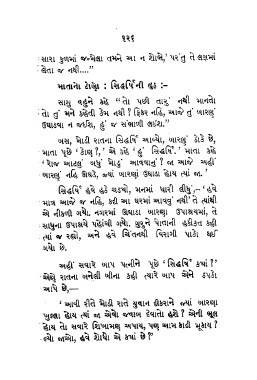 ૧૨૬
સારા કુળમાં જન્મેલા તમને આ ન શોભે,' પરંતુ તે લક્ષમાં
લેતા જ નથી...."
માતાનો ટોણો : સિદ્ધર્ષિની હઠ :-
સાસુ વહુને કહે "તો પછી તારું નથી માનતો
તો તું મને કહેતી કેમ નથી ? ફિકર નહિ, આજે તું બારણું
ઉઘાડવા ન જઈશ, હું જ સંભાળી લઈશ."
બસ, મોડી રાતના સિદ્ધર્ષિ આવ્યો, બારણું ઠોકે છે,
માતા પૂછે 'કોણ ?,' એ કહે 'હું સિદ્ધર્ષિ.' માતા કહે
'રોજ આટલું બધું મોડું આવવાનું ? જા આજે અહીં
બારણું નહિ ઊઘડે, જ્યાં બારણાં ઉઘાડાં હોય ત્યાં જા.'
સિદ્ધર્ષિ હવે હઠે ચડ્યો, મનમાં ધારી લીધું-'હવે
માત્ર આજે જ નહિ, કદી આ ઘરમાં આવવું નથી' તે ત્યાંથી
એ નીકળી ગયો. નગરમાં ઉઘાડા બારણા ઉપાશ્રયમાં, તે
સાધુના ઉપાશ્રયે પહોંચી ગયો. ગુરુને પોતાની હકીકત કહી
ત્યાં જ રહ્યો, અને હવે ચિંતનથી વિરાગી પાકો થઈ
ગયો છે.
અહીં સવારે બાપ પત્નીને પૂછે 'સિદ્ધર્ષિ ક્યાં ?'
એણે રાતના બનેલી બીના કહી ત્યારે બાપ એને ઠપકો
આપે છે,—
'આવી રીતે મોડી રાતે યુવાન દીકરાને જ્યાં બારણા
ખુલ્લા હોય ત્યાં જા એવો જવાબ દેવાતો હશે ? એની ભૂલ
હોય તો સવારે શિખામણ અપાય, પણ આમ કાઢી મૂકાય ?
લ્યો જાઓ, હવે શોધો એ ક્યાં છે ?'